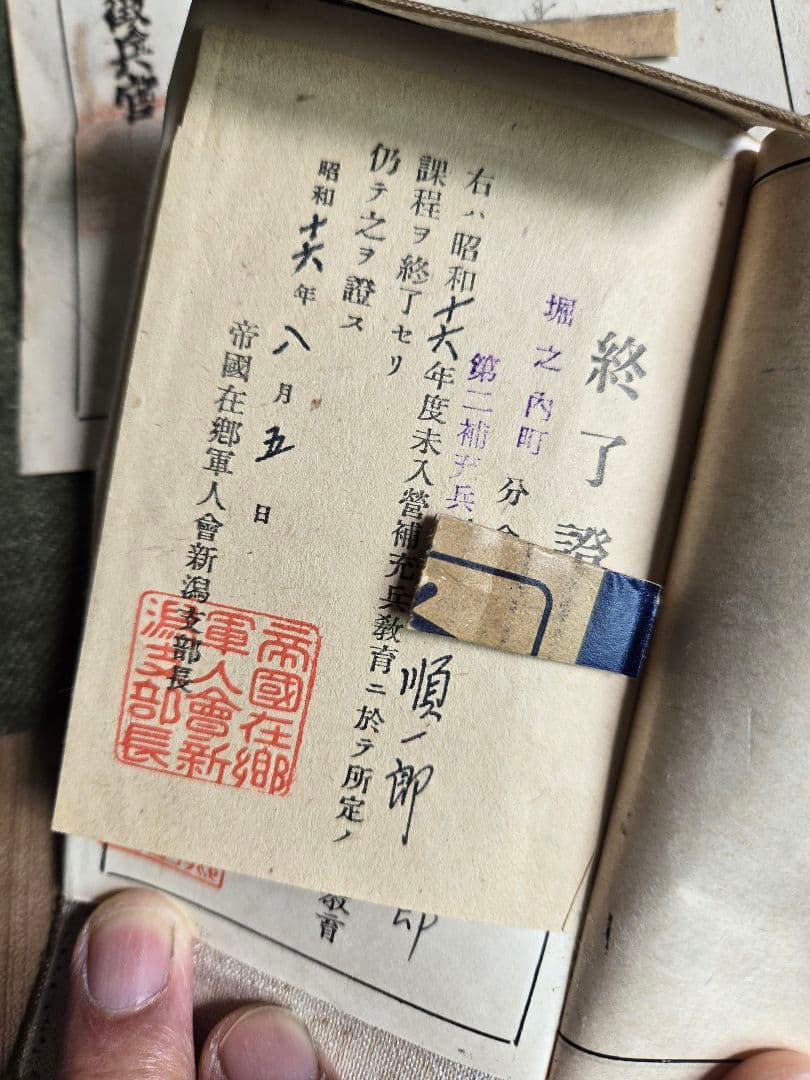 終了證
堀之內町 分會
第二補充兵
順一郎
右ハ昭和十六年度未入營補充兵教育ニ於テ所定ノ
課程ヲ終了セリ
仍テ之ヲ證ス
昭和十六年八月五日
帝國在鄉軍人會新潟支部長
帝國在鄉
軍人會新
潟支部長
徴兵官
教育
郎